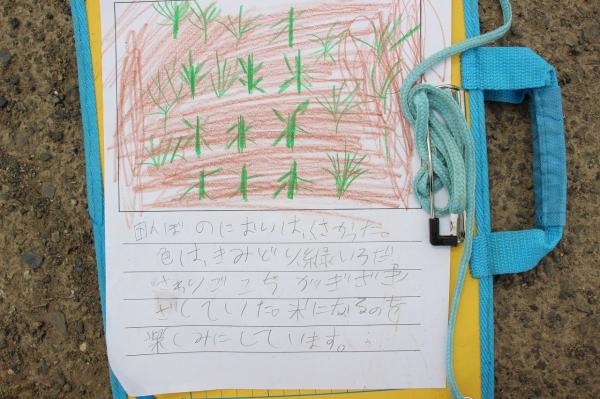 田んぼのにおいは、くさかった。
色は、きみどり緑いろだ
さわりごこち がギざぎ
ざしていた。米になるのを
楽しみにしています。